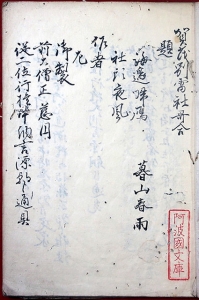 賀茂別雷社哥合
題
海邊帰鴈　暮山春雨
社頭夜風
作者
御製
前大僧正慈円
従二位行権中納言源朝臣通具
阿波國文庫